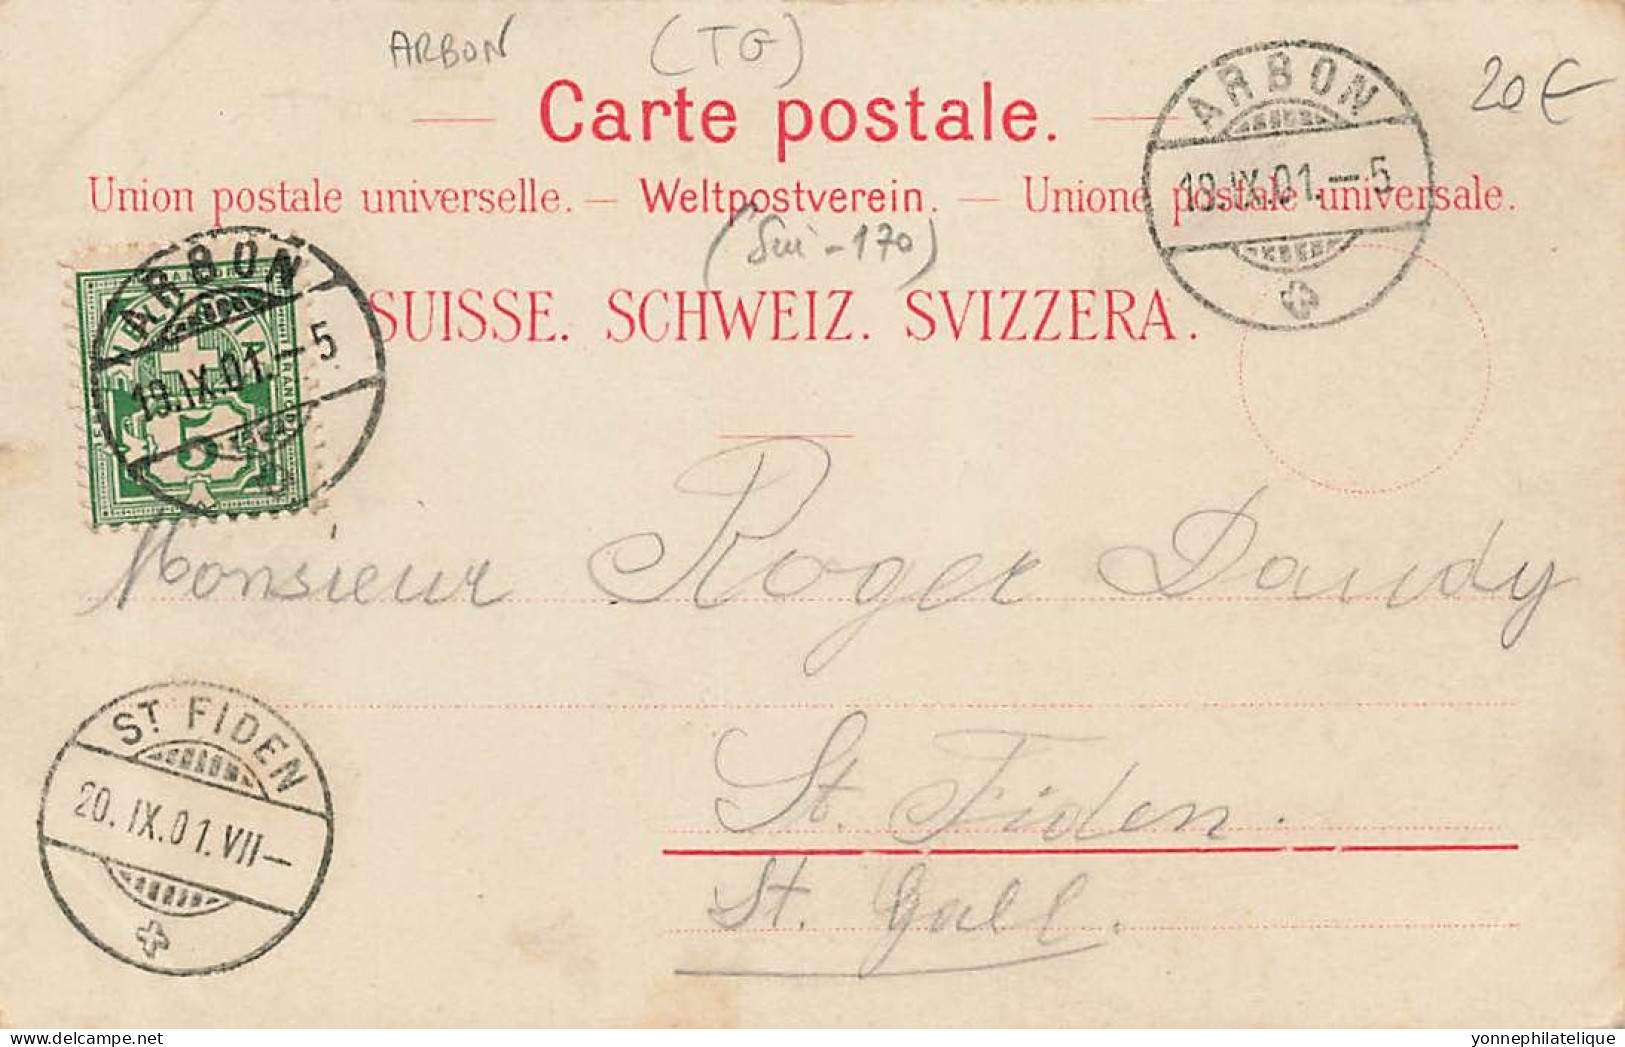 ARBON (TG) 20€
Carte postale.
Union postale universelle. — Weltpostverein. — Unione postale universale.
(Sui - 170)
SUISSE. SCHWEIZ. SVIZZERA.
ARBON
19.IX.01.–5
ARBON
19.IX.01.–5
5
Monsieur Roger Dandy
St. Fiden.
St. Gall.
ST FIDEN
20.IX.01.VII–
yonnephilatelique